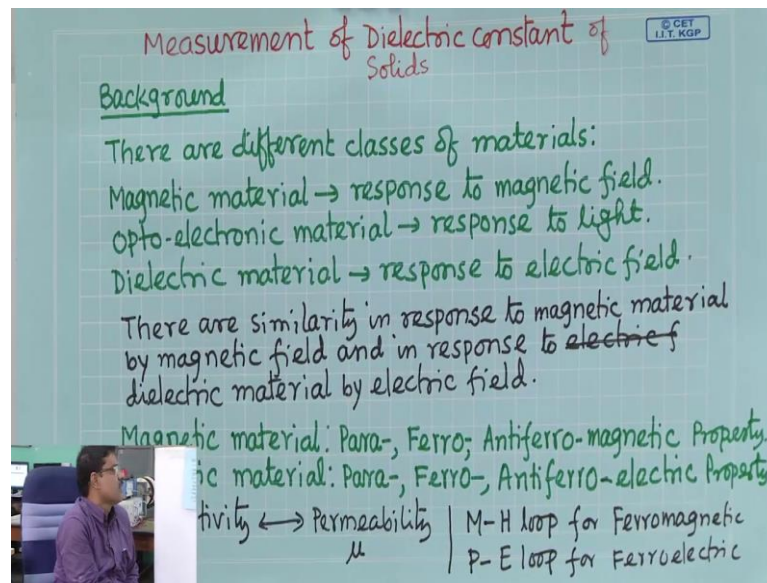 Measurement of Dielectric constant of
Solids
© CET
I.I.T. KGP
Background
There are different classes of materials:
Magnetic material → response to magnetic field.
Opto-electronic material → response to light.
Dielectric material → response to electric field.
There are similarity in response to magnetic material
by magnetic field and in response to electric f
dielectric material by electric field.
Magnetic material: Para-, Ferro-, Antiferro-magnetic Property.
ic material: Para-, Ferro-, Antiferro-electric Property
tivity ↔ Permeability | M-H loop for Ferromagnetic
μ | P-E loop for Ferroelectric